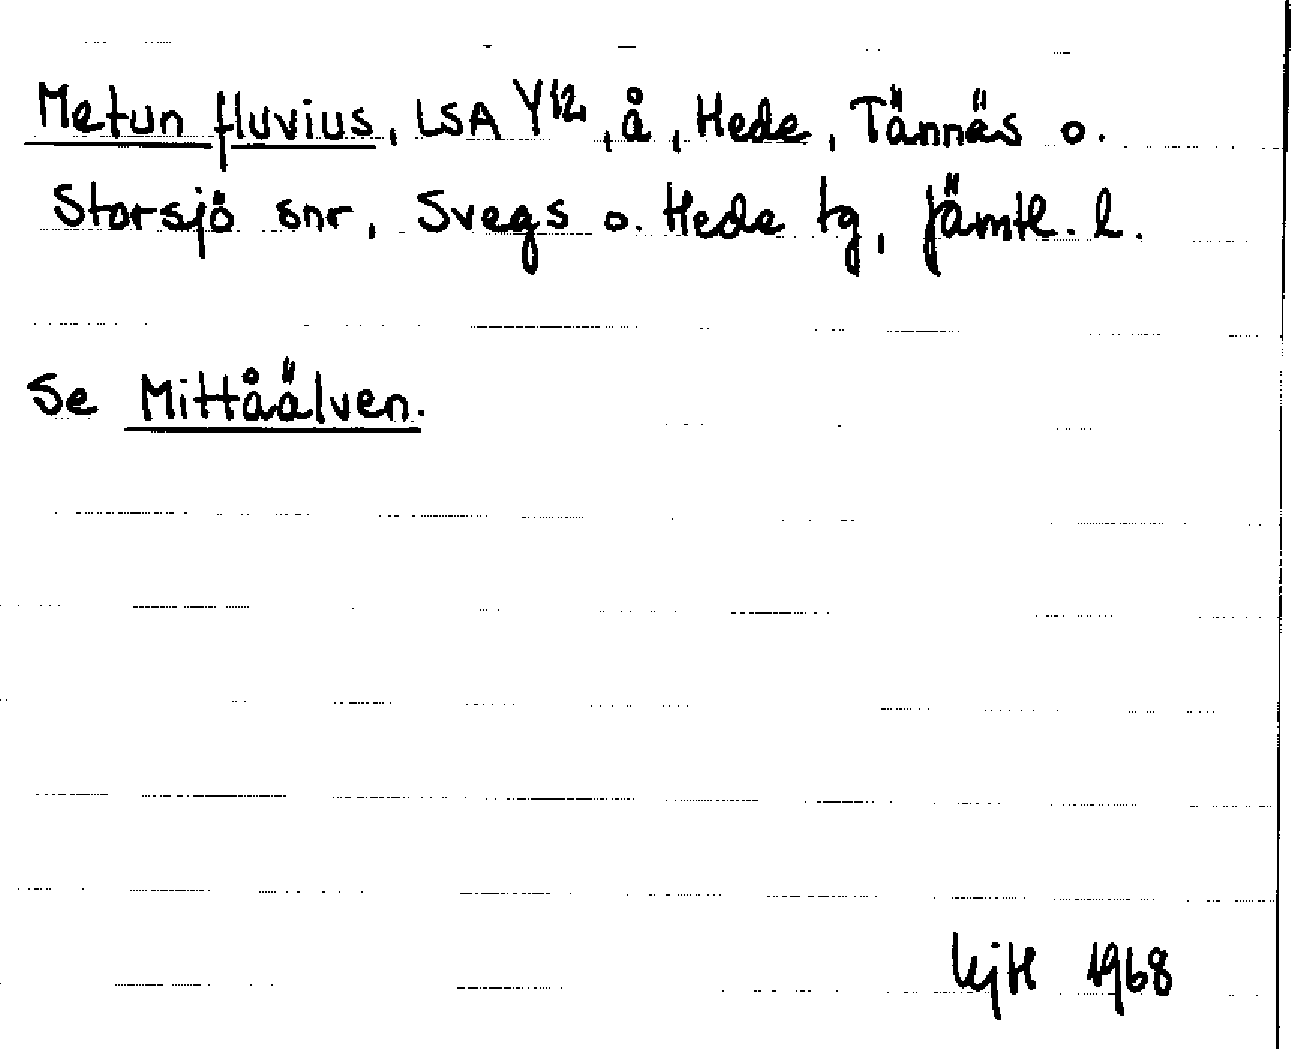 Metun fluvius, LSA Y12, å, Hede, Tännäs o.
Storsjö snr, Svegs o. Hede tg, Jämtl. l.
Se Mittåälven.
1968